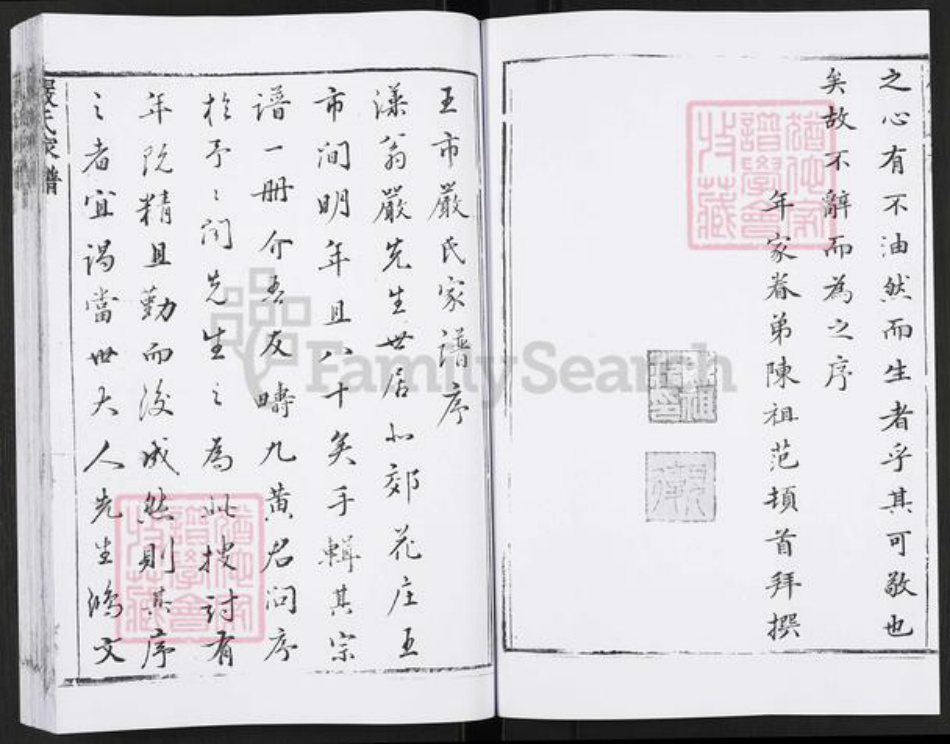 之心有不油然而生者乎其可敬也
矣故不辭而為之序
年家眷弟陳祖范頓首拜撰
王市嚴氏家譜序
漾翁嚴先生世居北郊花庄王
市間明年且八十矣手輯其宗
譜一册介吾友疇九黃君問序
於予予聞先生之為此搜討有
年既精且勤而後成然則其序
之者宜謁當世大人先生鴻文
嚴氏家譜
FamilySearch